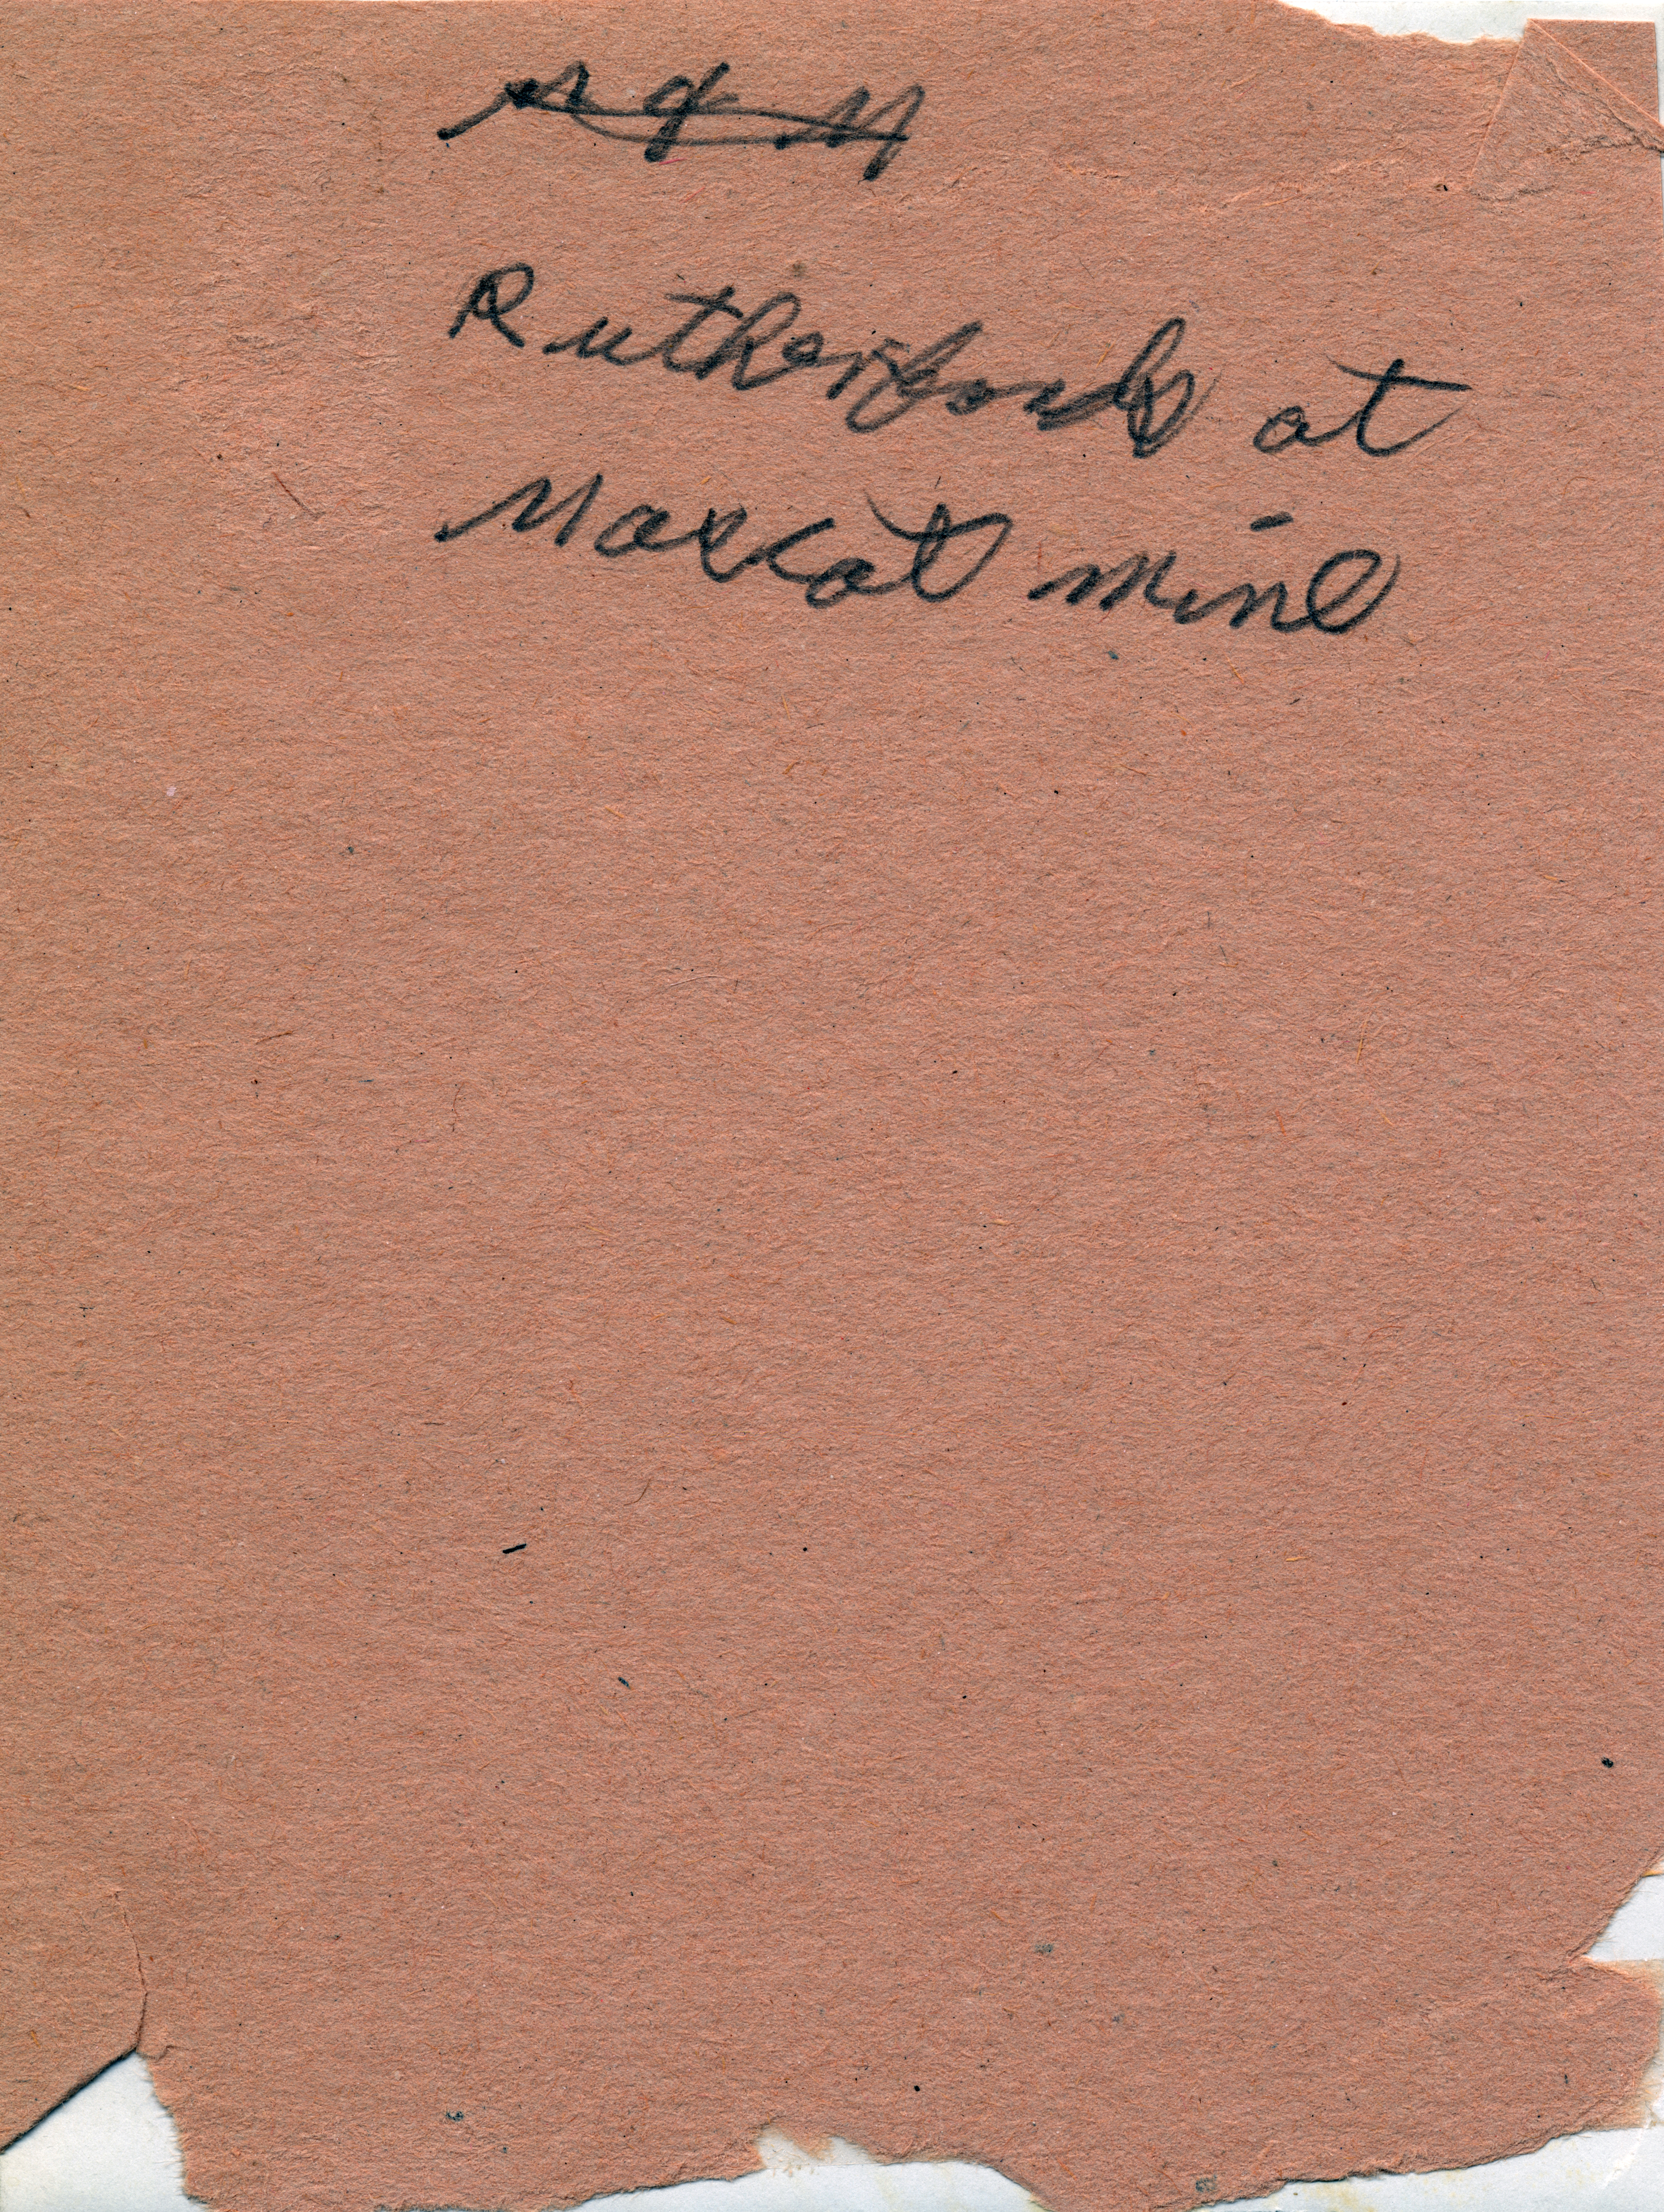 Rutherfords at
Mascot mine